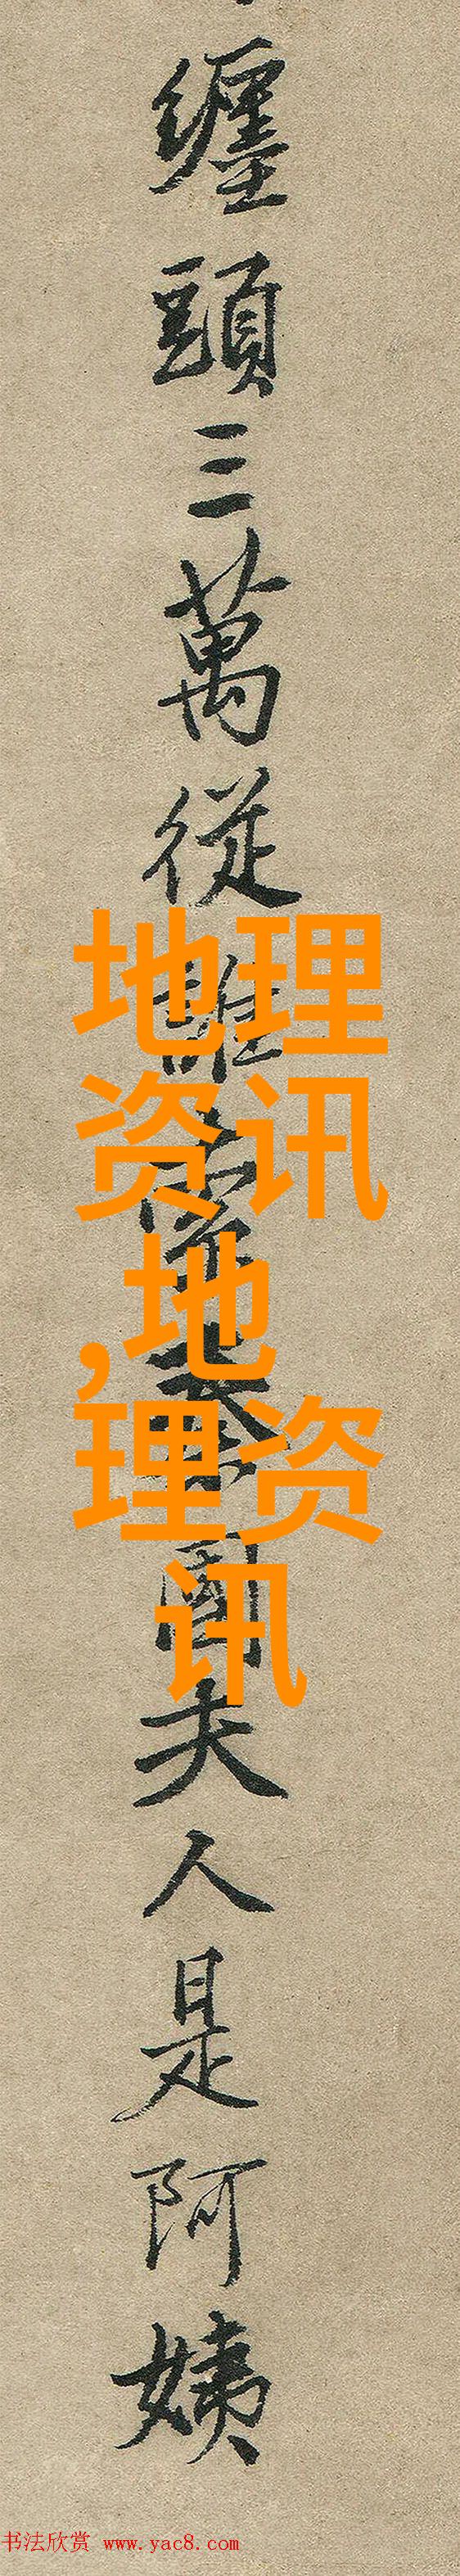 纏頭三萬從誰秦國夫人是阿姨
地理
资讯
,地
理资
讯
书法欣赏 www.yac8.com